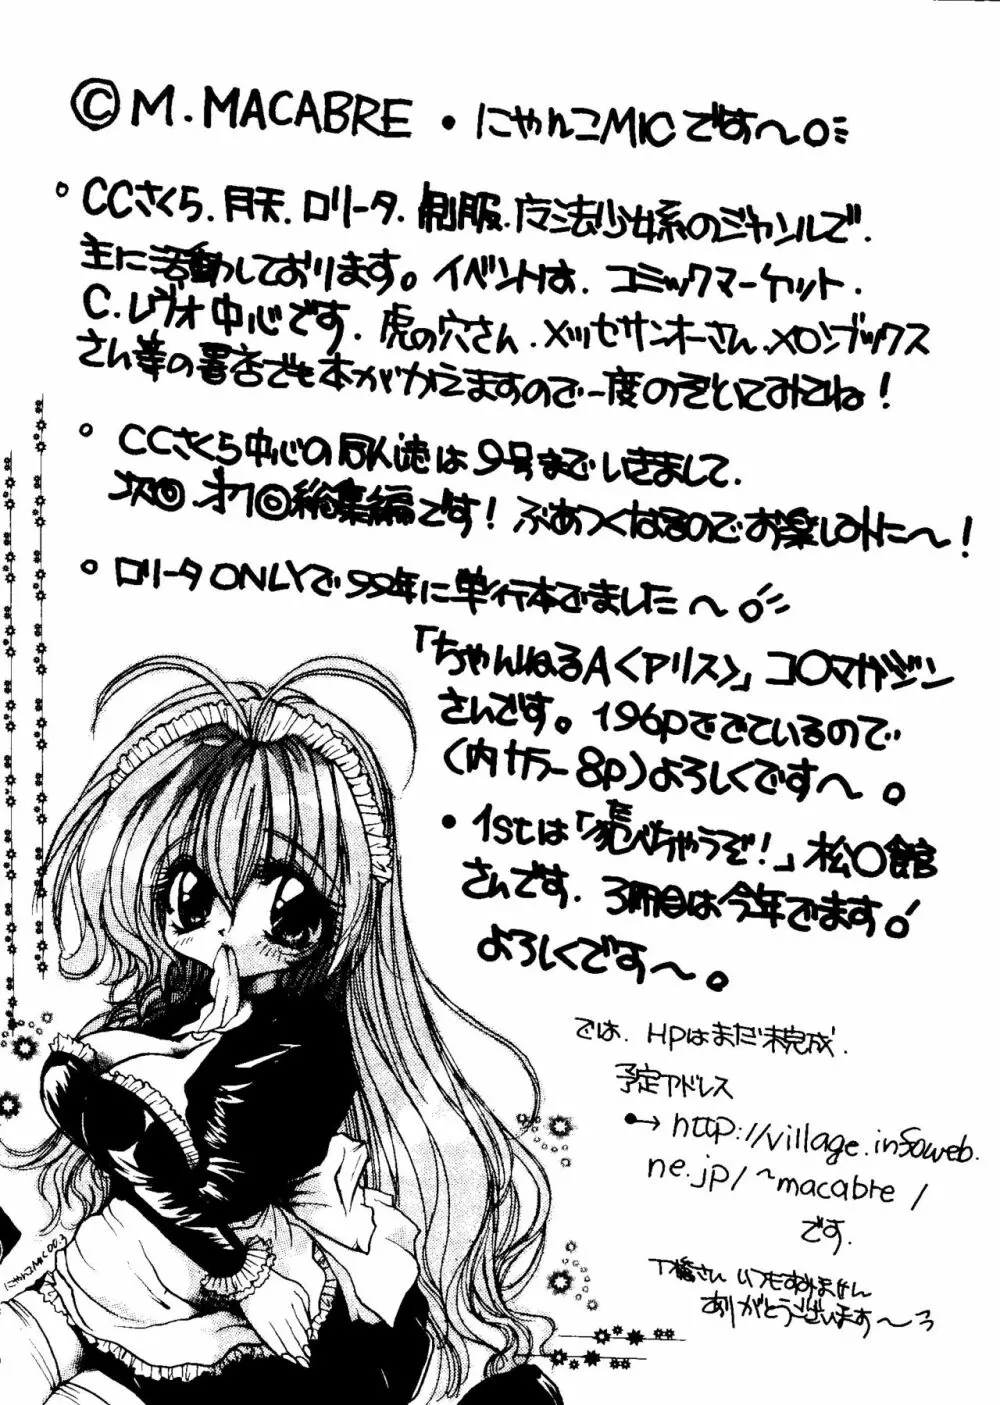 ©M.MACABRE・にゃんこMICです〜。
。CCさくら.月天.ロリータ.制服.魔法少女系のジャンルで.
主に活動しております。イベントは.コミックマーケット.
C.レヴォ中心です.虎の穴さん.メッセサンオーさん.メロンブックス
さん等の書店でも本がかえますので一度のぞいてみてね!
。CCさくら中心の同人誌は9号までいきまして.
次回.オ1回総集編です!ぶあつくなるのでお楽しみに〜!
。ロリータONLYで99年に単行本でました〜。
「ちゃんねるA<アリス>」コ〇マガジン
さんです。196pででているので
(内カラー8p)よろしくです〜。
・1stは「売べちゃうぞ!」松〇館
た
さんです.3冊目は今年でます。
よろしくです〜。
では.HPはまだ未完成.
予定アドレス
・→http://village.infoweb.
ne.jp/~macabre/
です.
T橋さんいつもすみません
ありがとうございます〜
にゃんこMIC00.3